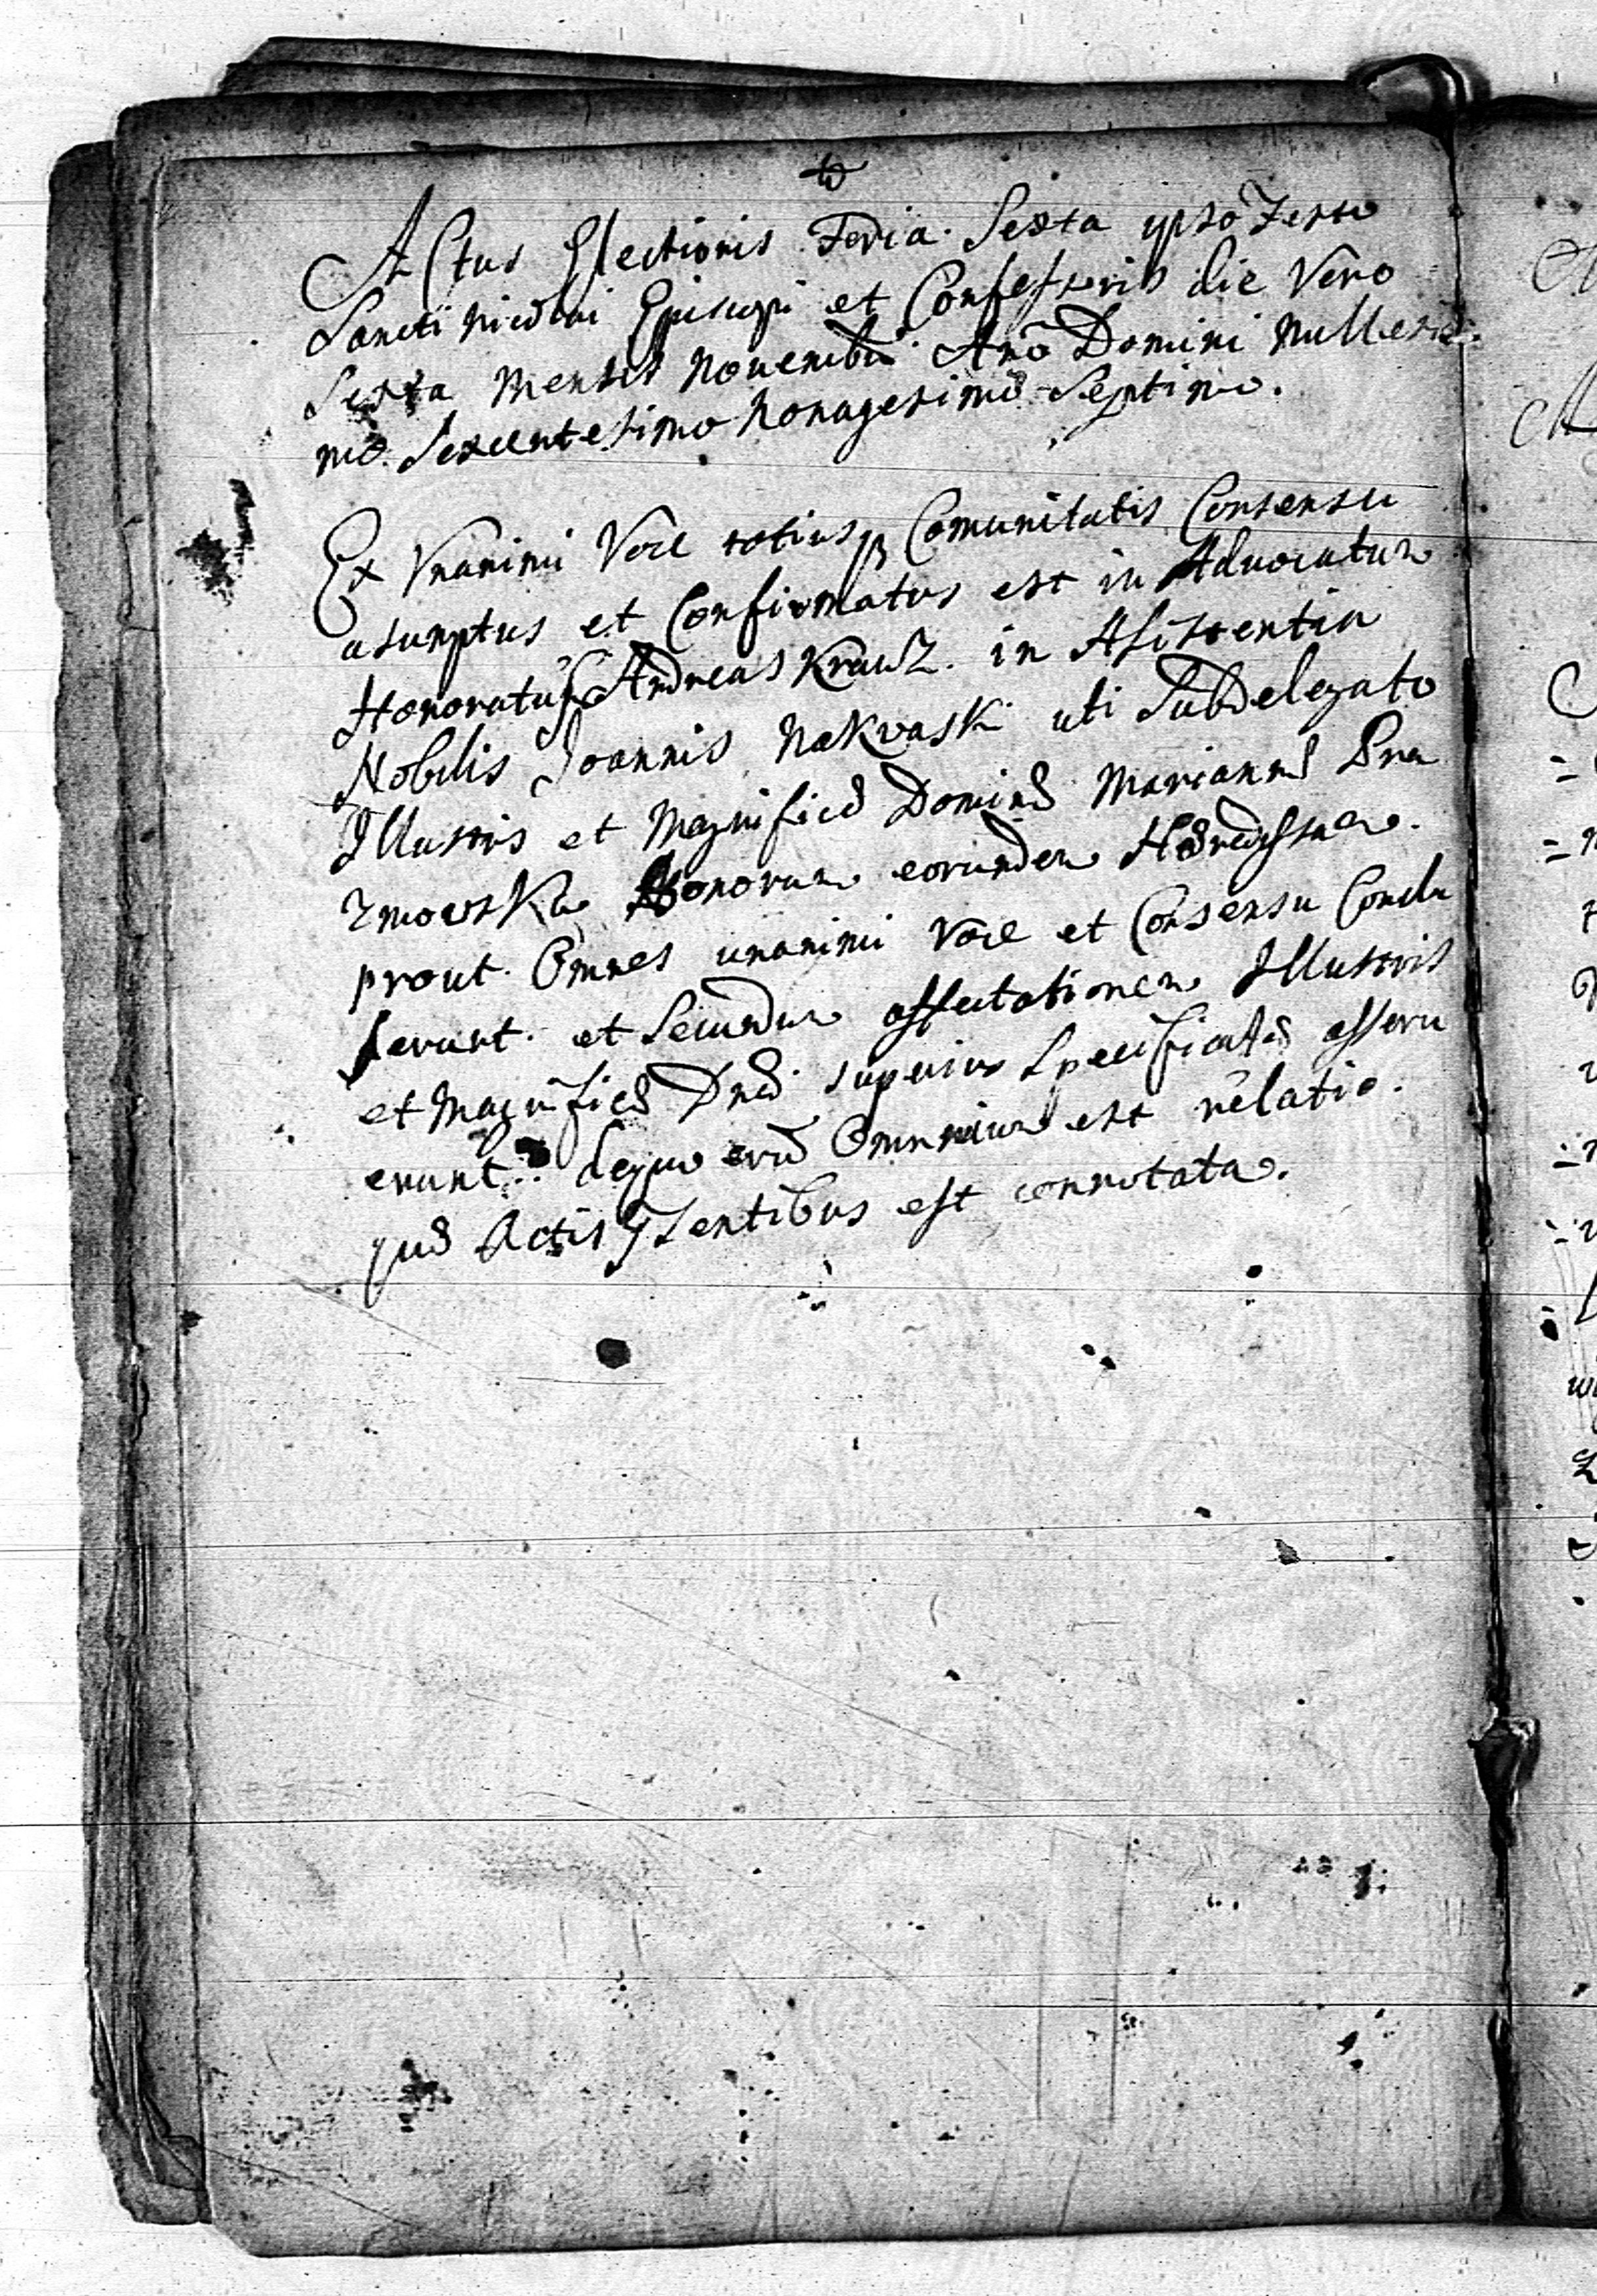 Actus Electionis Feria Sexta ipso Festo
Sancti Nicolai Episcopi et Confessoris die Vero
Sexta Mensis Novembris Ano Domini Millesi
mo Sexcentesimo Nonagesimo Septimo.
Ex Unanimi Voce totiusq Comunitatis Consensu
asumptus et Confirmatus est in Advocatum
Honoratus Andreas Krawz. in Asistentia
Nobilis Joannis Nakvaski uti Subdelegato
Illustris et Magnificæ Dominæ Mariannæ Pra
zmowska Bonorum eorundem Hæredissae.
prout Omnes unanimi Voce et Consensu Conclu
serunt. et Secundum affectationem Illustris
et Magnificæ Dnæ superius Specificatæ asseru
erunt. Omnium est relatio.
quæ Actis psentibus est connotata.